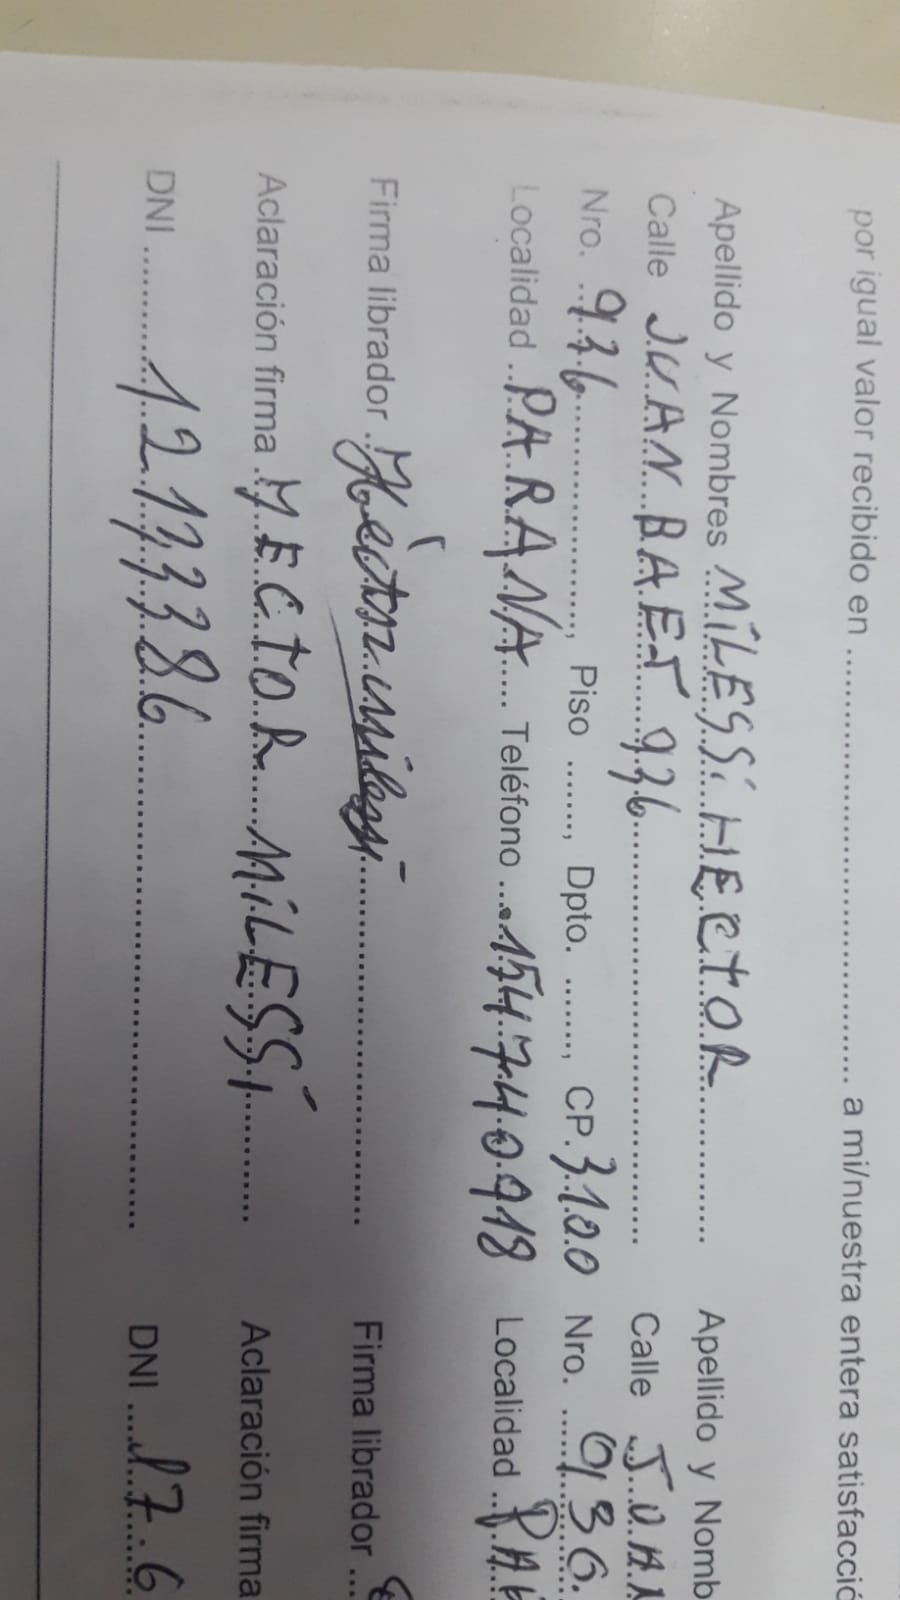 por igual valor recibido en ........ a mi/nuestra entera satisfacció
Apellido y Nombres MILESSI HECTOR Apellido y Nomb
Calle JUAN BAET 936 Calle JUAN
Nro. 936, Piso ......, Dpto. ......, CP. 3100 Nro. 936.
Localidad PARANA Teléfono 154740918 Localidad PA
Firma librador Héctor Milessi Firma librador
Aclaración firma HECTOR MILESSI Aclaración firma
DNI DNI 17.6